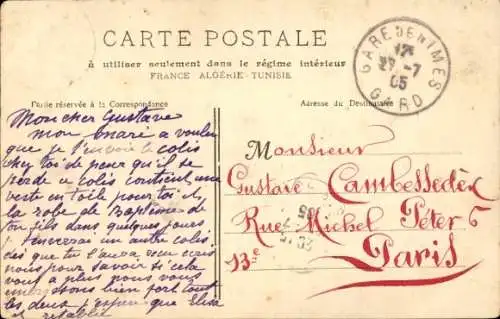 CARTE POSTALE
à utiliser seulement dans le régime intérieur
FRANCE ALGÉRIE-TUNISIE
GARE DE NIMES
GARD
12E
27 -7
05
Partie réservée à la Correspondance
Adresse du Destinataire
Mon cher Gustave
mon mari a voulu
que je t'envoie le colis
chez toi de peur qu'il se
perde ce colis contient une
veste en toile pour toi et
la robe de Baptême de
ton fils dans quelques jours
j'enverrai un autre colis
dès que tu l'auras
nous pour savoir si cela
vous a plu nous vous
embrassons bien fort tout
les deux j'espère que Elise
est rétablie
Monsieur
Gustave Cambessedès
Rue Michel Péter 6
13e Paris